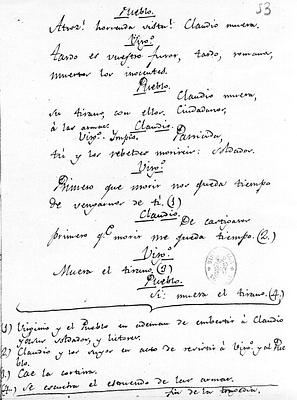 53
Pueblo.
Atroz! horrenda vista! Claudio muera.
Virg.º
tardo es vuestro furor, tardo, romanos,
muertos los inocentes.
Pueblo.
Claudio muera,
su tirano, con ellos. Ciudadanos,
á las armas. Claudio.
Virg.º Impío. Parricida,
tú y los rebeldes morireis: soldados.
Virg.º
Primero que morir nos queda tiempo
de vengarnos de ti. (1)
Claudio.
De castigaros
primero q.e morir me queda tiempo. (2.)
Virg.º
Muera el tirano. (3)
Pueblo.
Si: muera el tirano. (4.)
1.) Virginio y el Pueblo en ademan de embestir á Claudio
y sus soldados, y lictores.
2.) Claudio y los suyos en acto de resistir á Virg.º y al Pueblo.
3.) Cae la cortina.
(4.) Se escucha el estruendo de las armas.
fin de la tragedia.